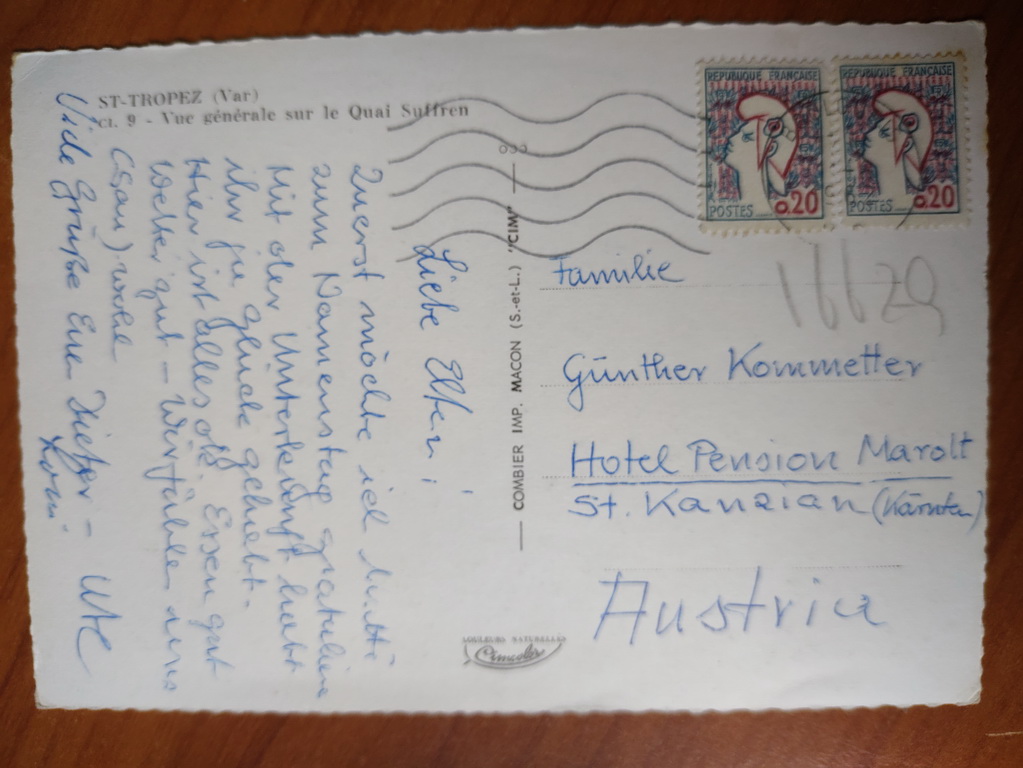 ST-TROPEZ (Var)
Ct. 9 - Vue générale sur le Quai Suffren
Liebe Eltern!
Zuerst möchte ich Mutti
zum Namenstag gratulieren
Mit der Unterkunft habt
ihr ja Glück gehabt.
Hier ist alles ok. Essen gut
Wetter gut - Wir fühlen uns
wohl
Viele Grüße Eure Dieter - Ute
COMBIER IMP. MACON (S.-et-L.) "CIM"
REPUBLIQUE FRANÇAISE
POSTES 0.20
REPUBLIQUE FRANÇAISE
POSTES 0.20
16629
Familie
Günther Kommetter
Hotel Pension Marolt
St. Kanzian (Kärnten)
Austria
COULEURS NATURELLES
Cimcolor